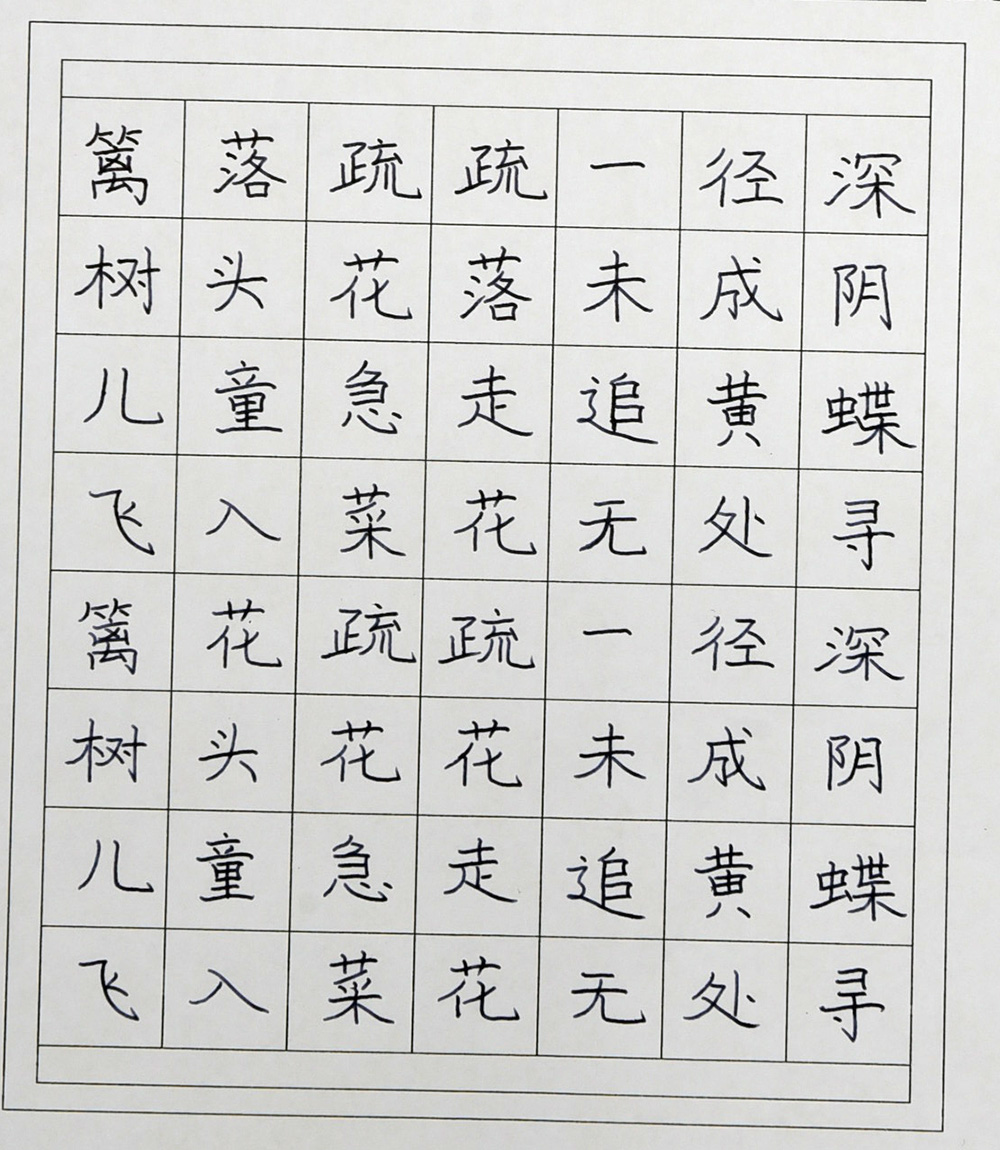 篱落疏疏一径深
树头花落未成阴
儿童急走追黄蝶
飞入菜花无处寻
篱花疏疏一径深
树头花花未成阴
儿童急走追黄蝶
飞入菜花无处寻